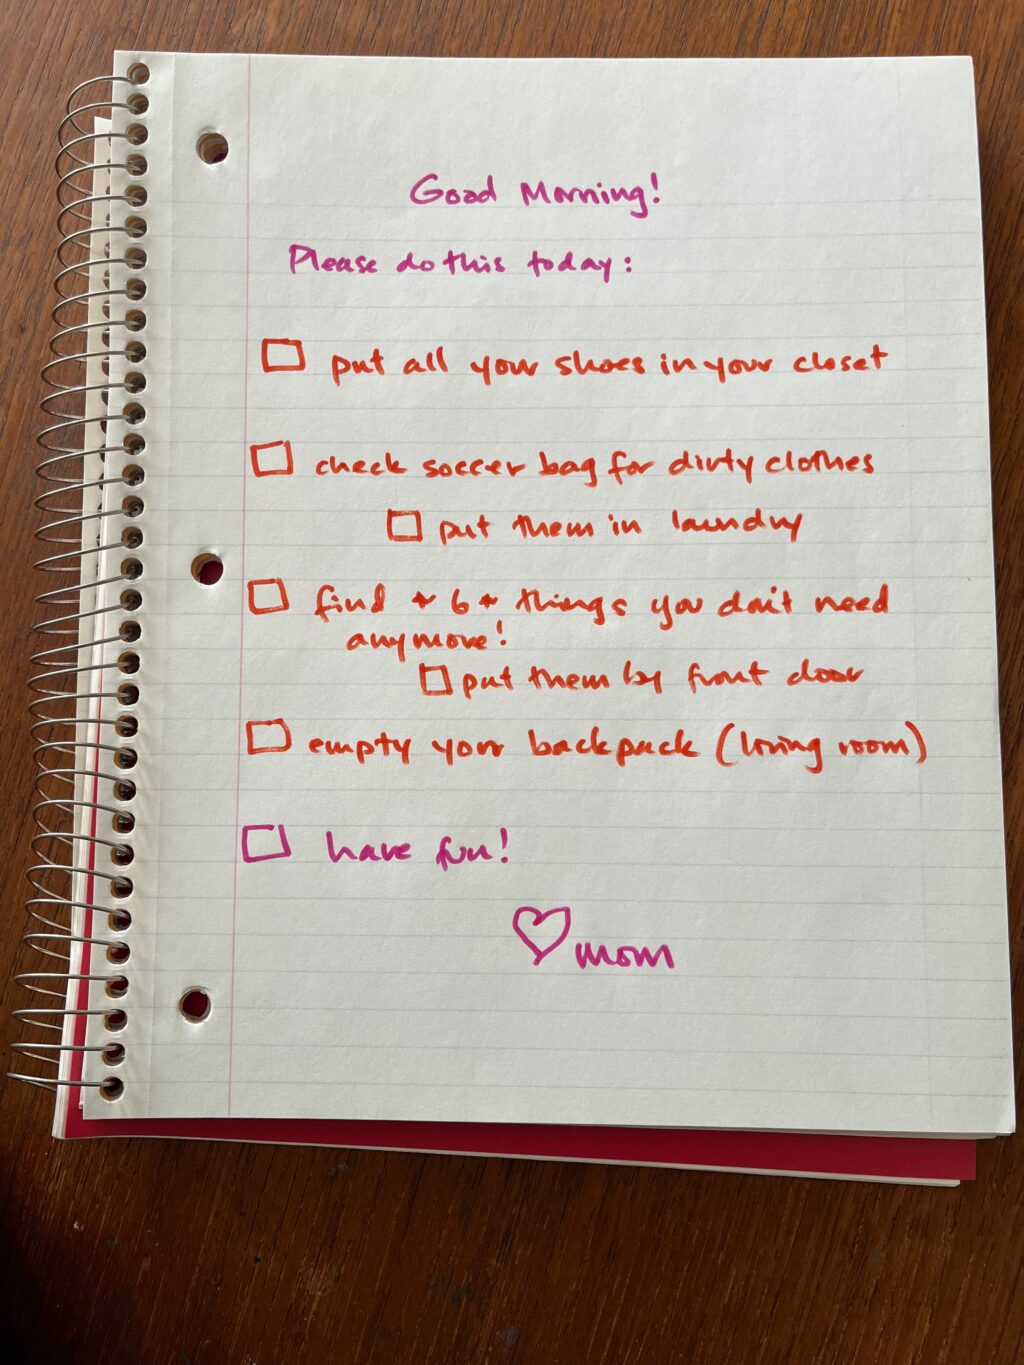 Good Morning!
Please do this today:
☐ put all your shoes in your closet
☐ check soccer bag for dirty clothes
☐ put them in laundry
☐ find *6* things you don't need
anymore!
☐ put them by front door
☐ empty your backpack (living room)
☐ have fun!
♡ mom